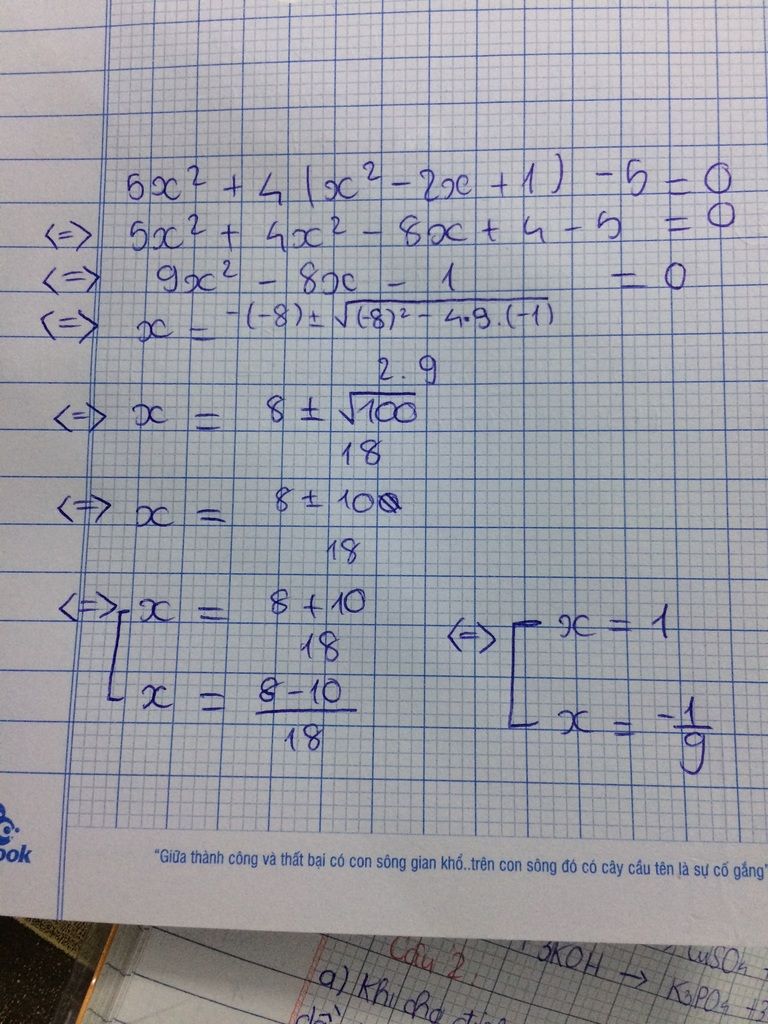 5x² + 4(x² - 2x + 1) - 5 = 0
<=> 5x² + 4x² - 8x + 4 - 5 = 0
<=> 9x² - 8x - 1 = 0
<=> x = -(-8) ± √(-8)² - 4.9.(-1)
2.9
<=> x = 8 ± √100
18
<=> x = 8 ± 10
18
<=> x = 8 + 10
18
x = 8 - 10
18
<=> x = 1
x = -1
9
ook
"Giữa thành công và thất bại có con sông gian khổ..trên con sông đó có cây cầu tên là sự cố gắng"
Câu 2.
3KOH → K3PO4 +3
CuSO4
a) Khi cho